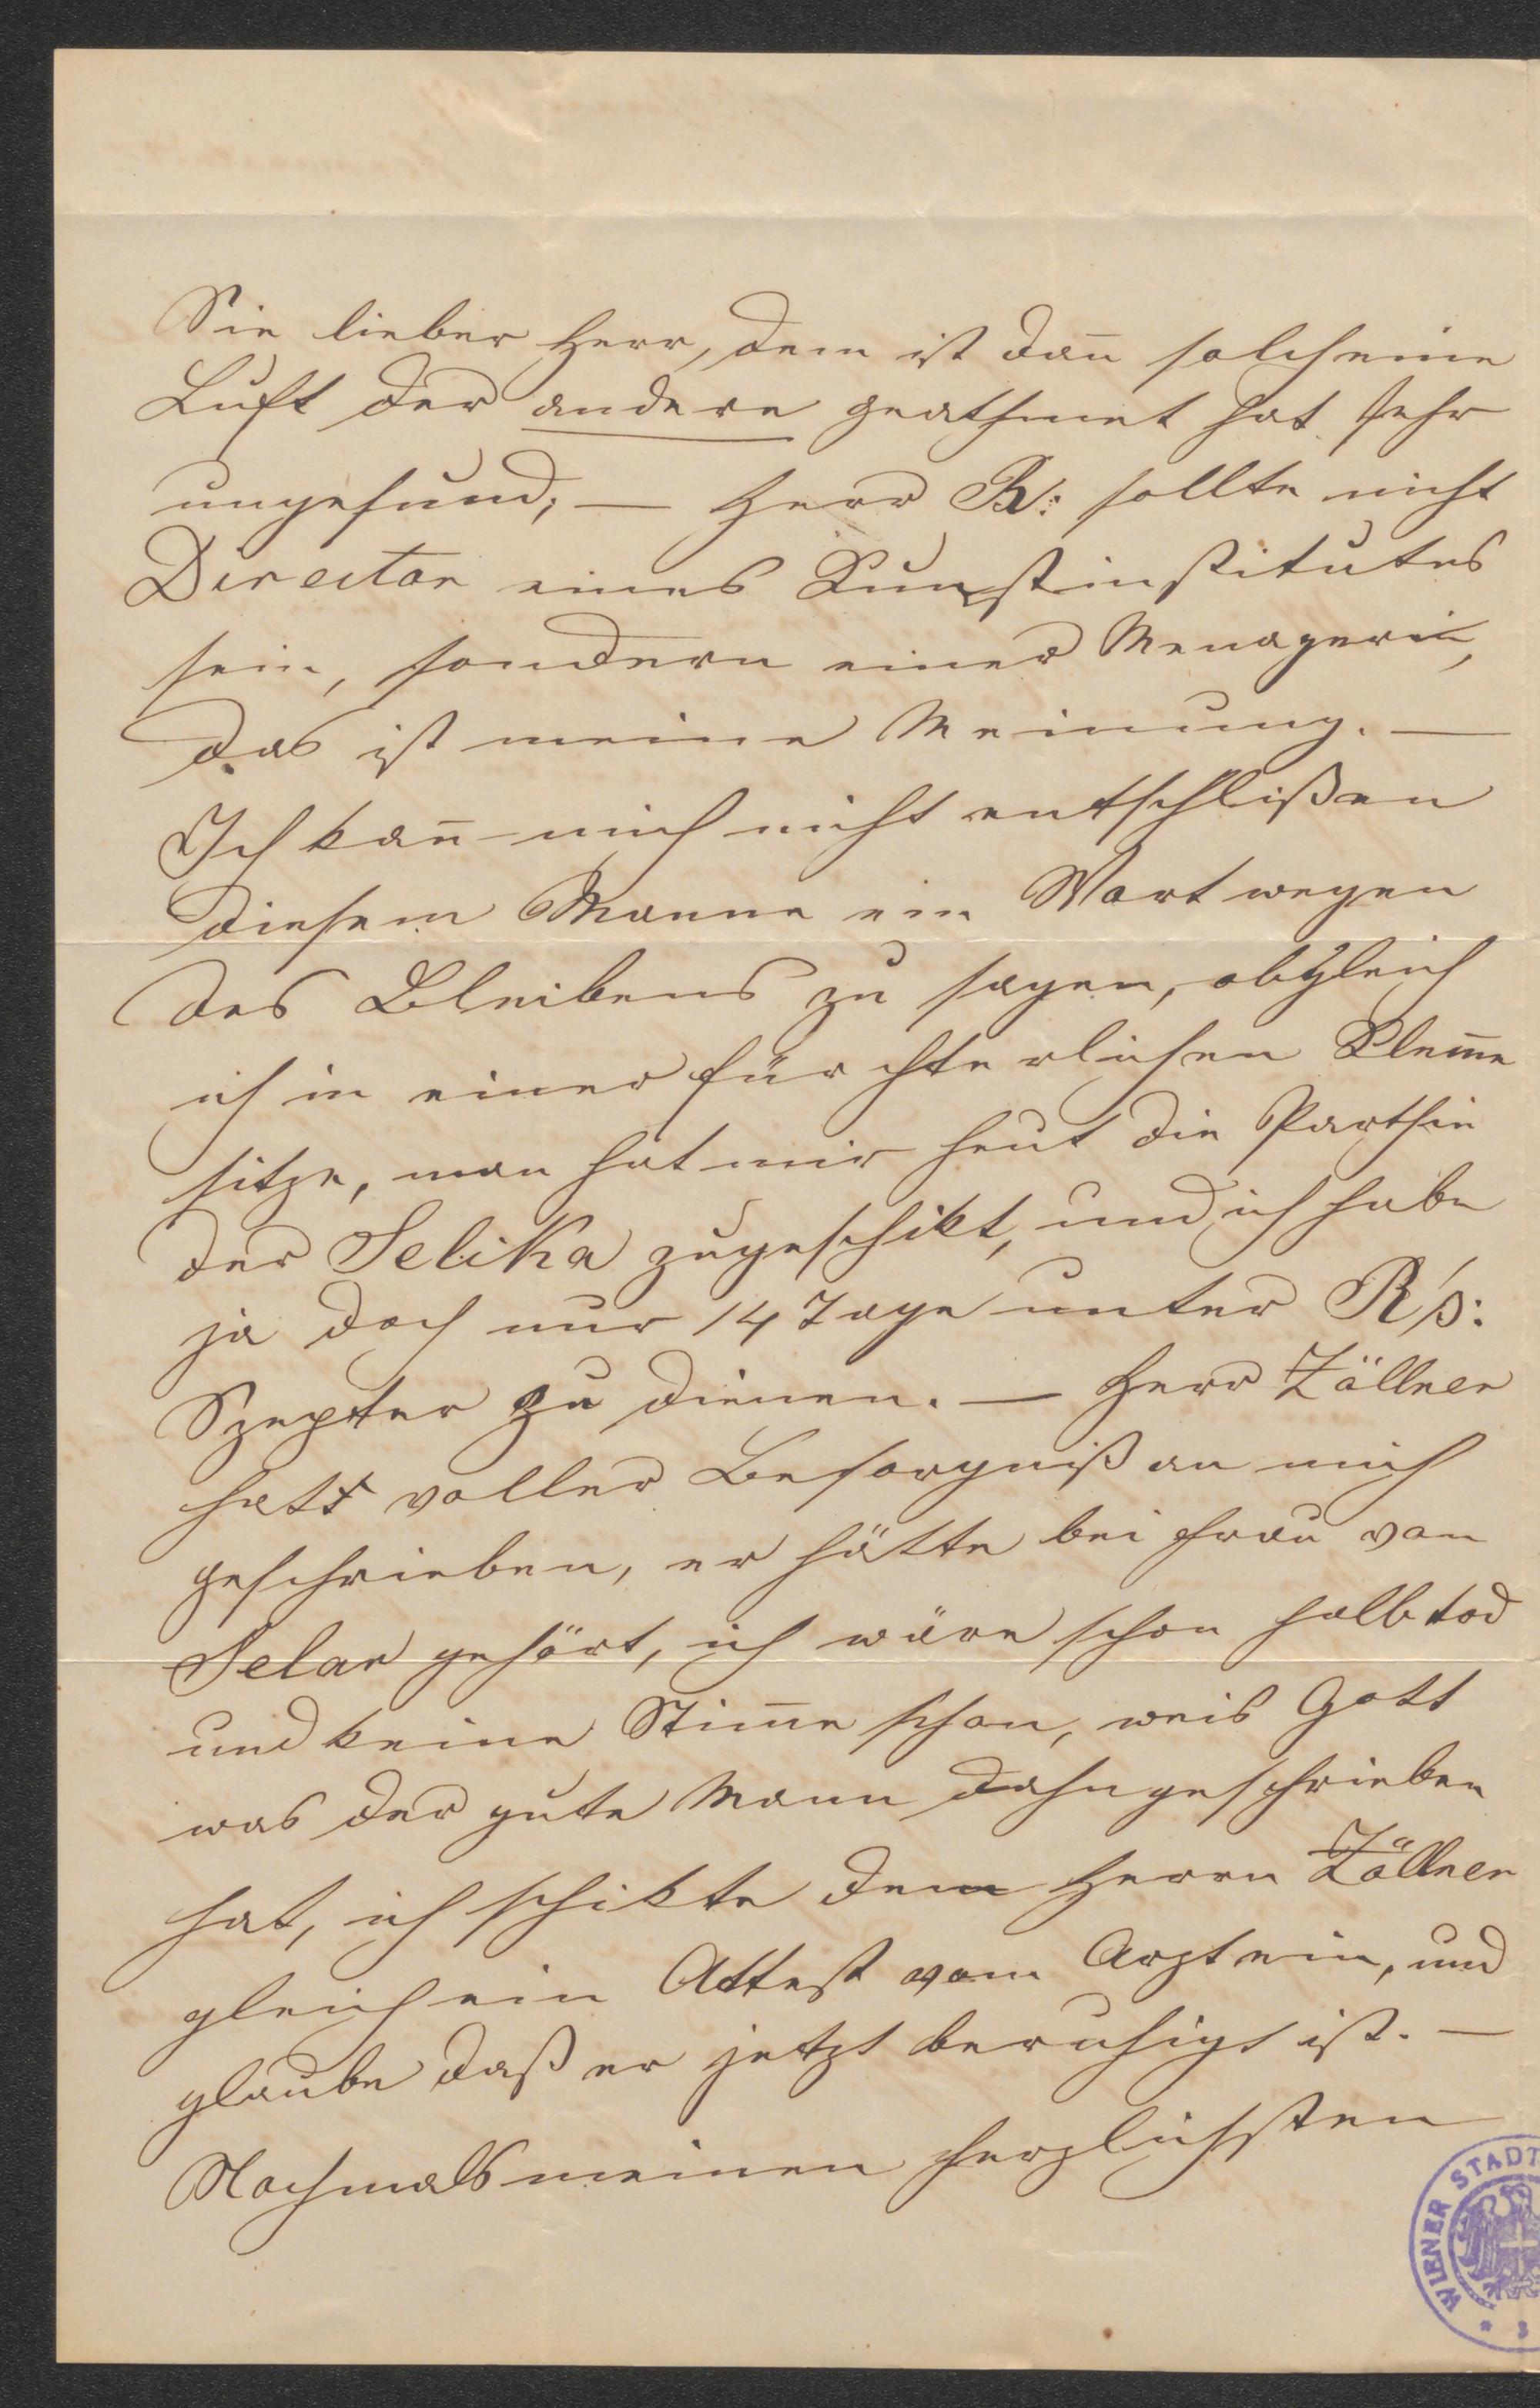 Sie lieber Herr, dem ist dan̄ solch eine
Luft der andere geathmet hat sehr
ungesund; — Herr R: sollte nicht
Director eines Kunstinstitutes
sein, sondern einer Menagerie,
das ist meine Meinung. —
Ich kan̄ mich nicht entschlißen
diesem Manne ein Wort wegen
des Bleibens zu sagen, obgleich
ich in einer fürchterlichen Klem̄e
sitze, man hat mir heut die Parthie
der Selika zugeschikt, und ich habe
ja doch nur 14 Tage unter R's:
Szepter zu dienen. — Herr Zöllner
hatt voller Besorgniß an mich
geschrieben, er hätte bei Frau von
Selar gehört, ich wäre schon halbtod
und keine Stim̄e schon, weis Gott
was der gute Mann da hingeschrieben
hat, ich schikte dem Herrn Zöllner
gleich ein Attest vom Arzt ein, und
glaube daß er jetzt beruhigt ist. —
Nochmals meinen herzlichsten
WIENER STADT